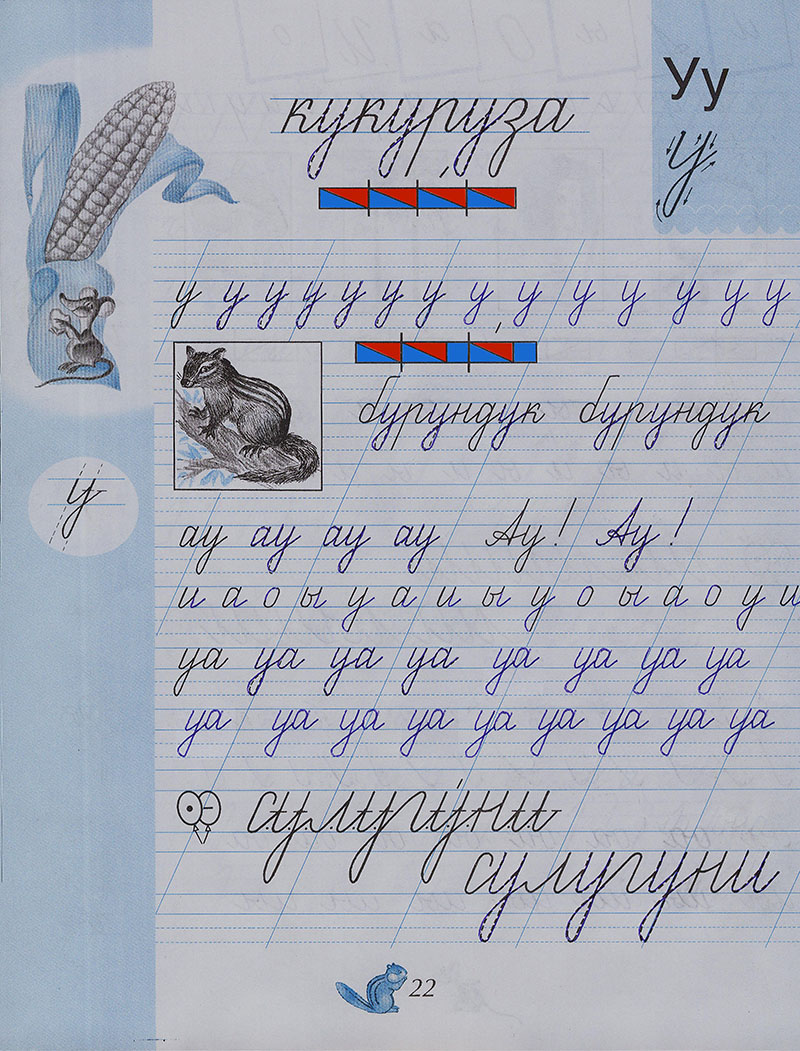 Уу
кукуруза
у
у у у у у у у у у у у у у у
бурундук бурундук
у
ау ау ау ау Ау! Ау!
и а о ы у а и ы у о ы а о у и
уа уа уа уа уа уа уа уа
уа уа уа уа уа уа уа уа уа
сулугу́ни
сулугуни
22